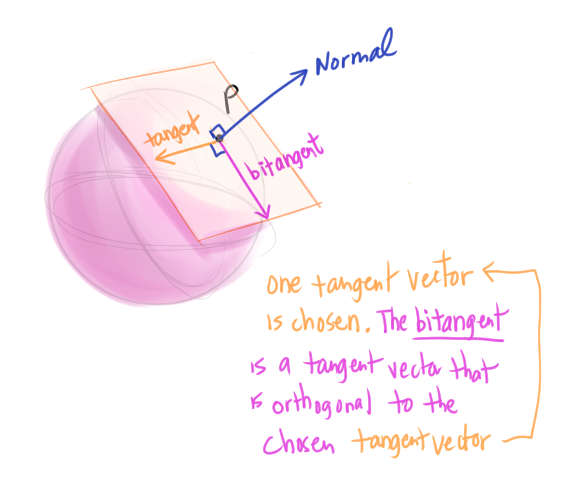 Normal
P
tangent
bitangent
one tangent vector
is chosen. The bitangent
is a tangent vector that
is orthogonal to the
chosen tangent vector